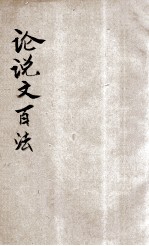 论说文百法